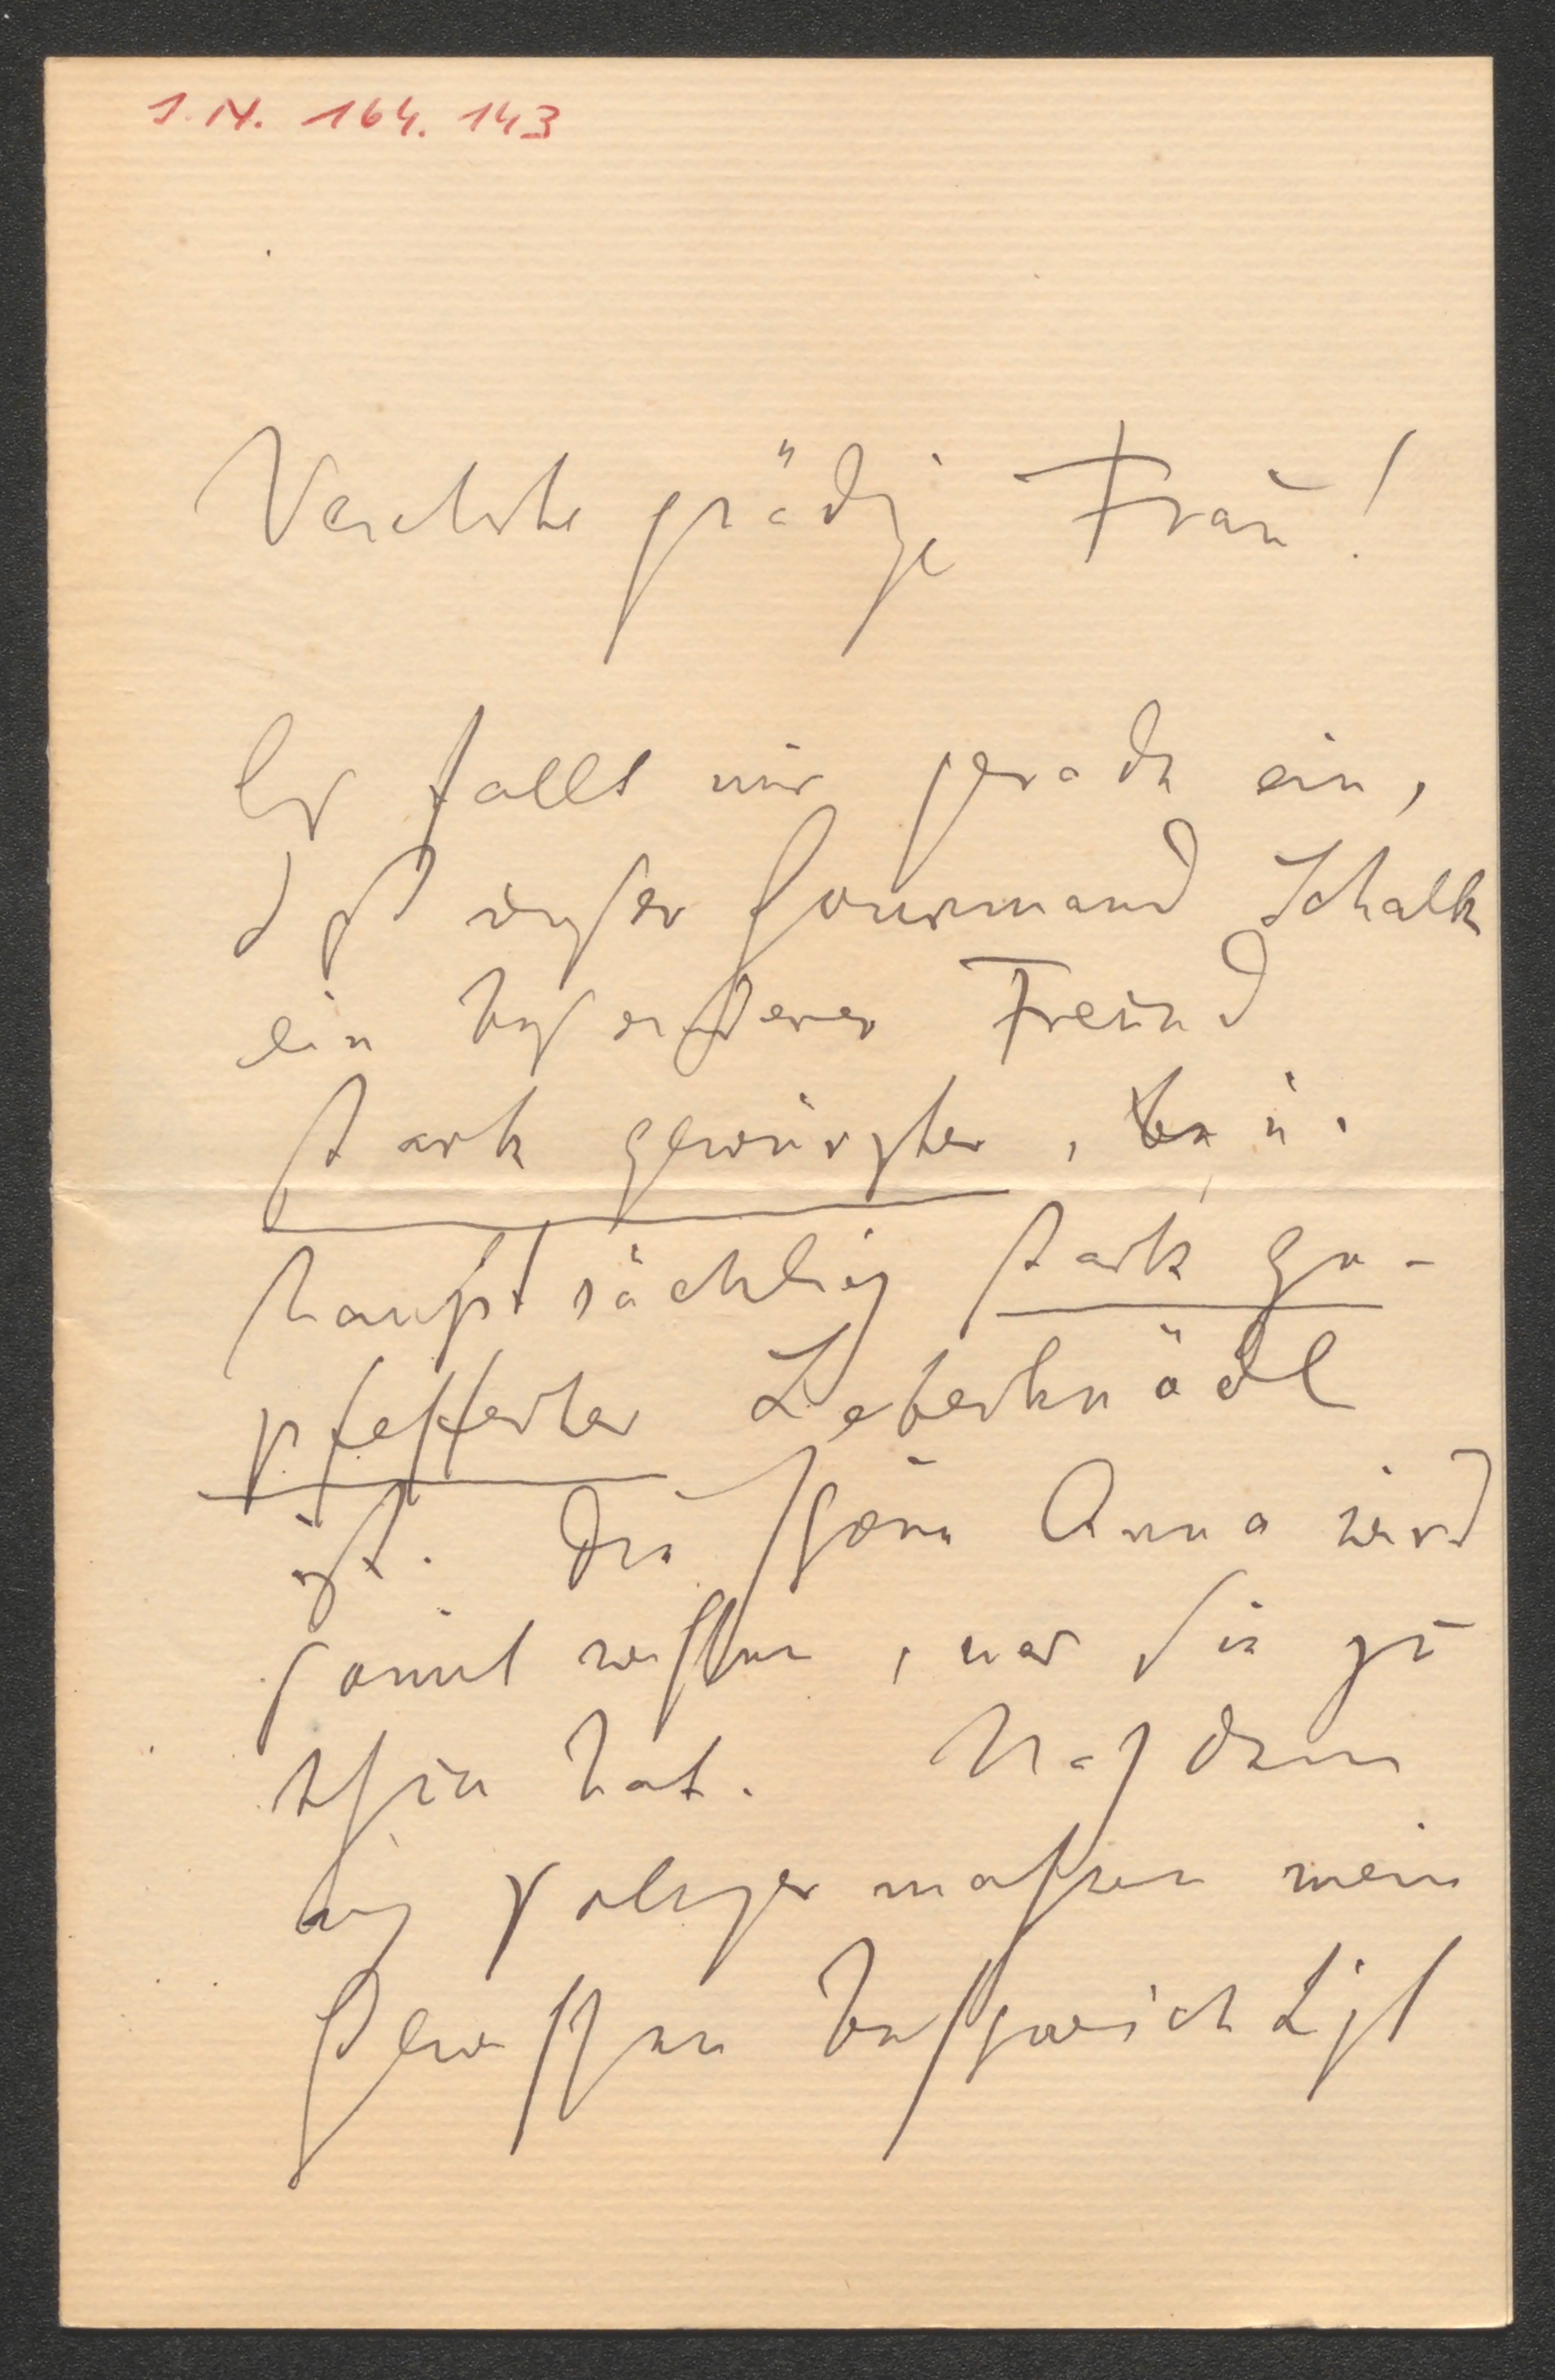 I.N. 164.143
Verehrte gnädige Frau!
Es fällt mir gerade ein,
daß unser Gourmand Schalk
ein besonderer Freund
stark gewürzter, u.
hauptsächlich stark ge-
pfefferter Leberknödl
ist. Die schöne Anna wird
somit wissen, was sie zu
thun hat. Nachdem
ich solchermaßen mein
Gewissen beschwichtigt